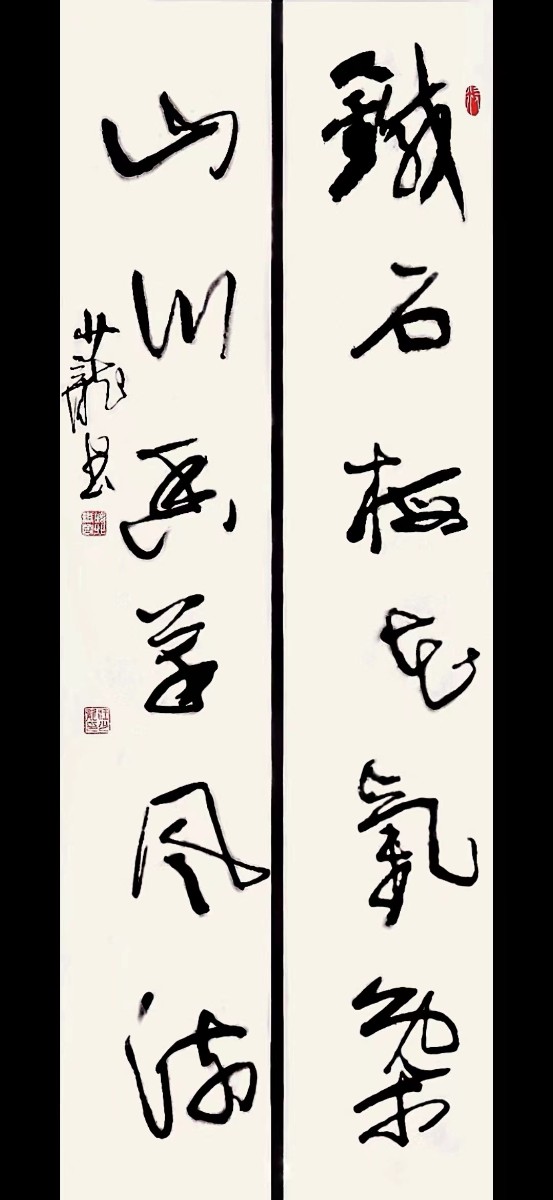 鐵石梅花氣槩
山川香草風流
少龍書